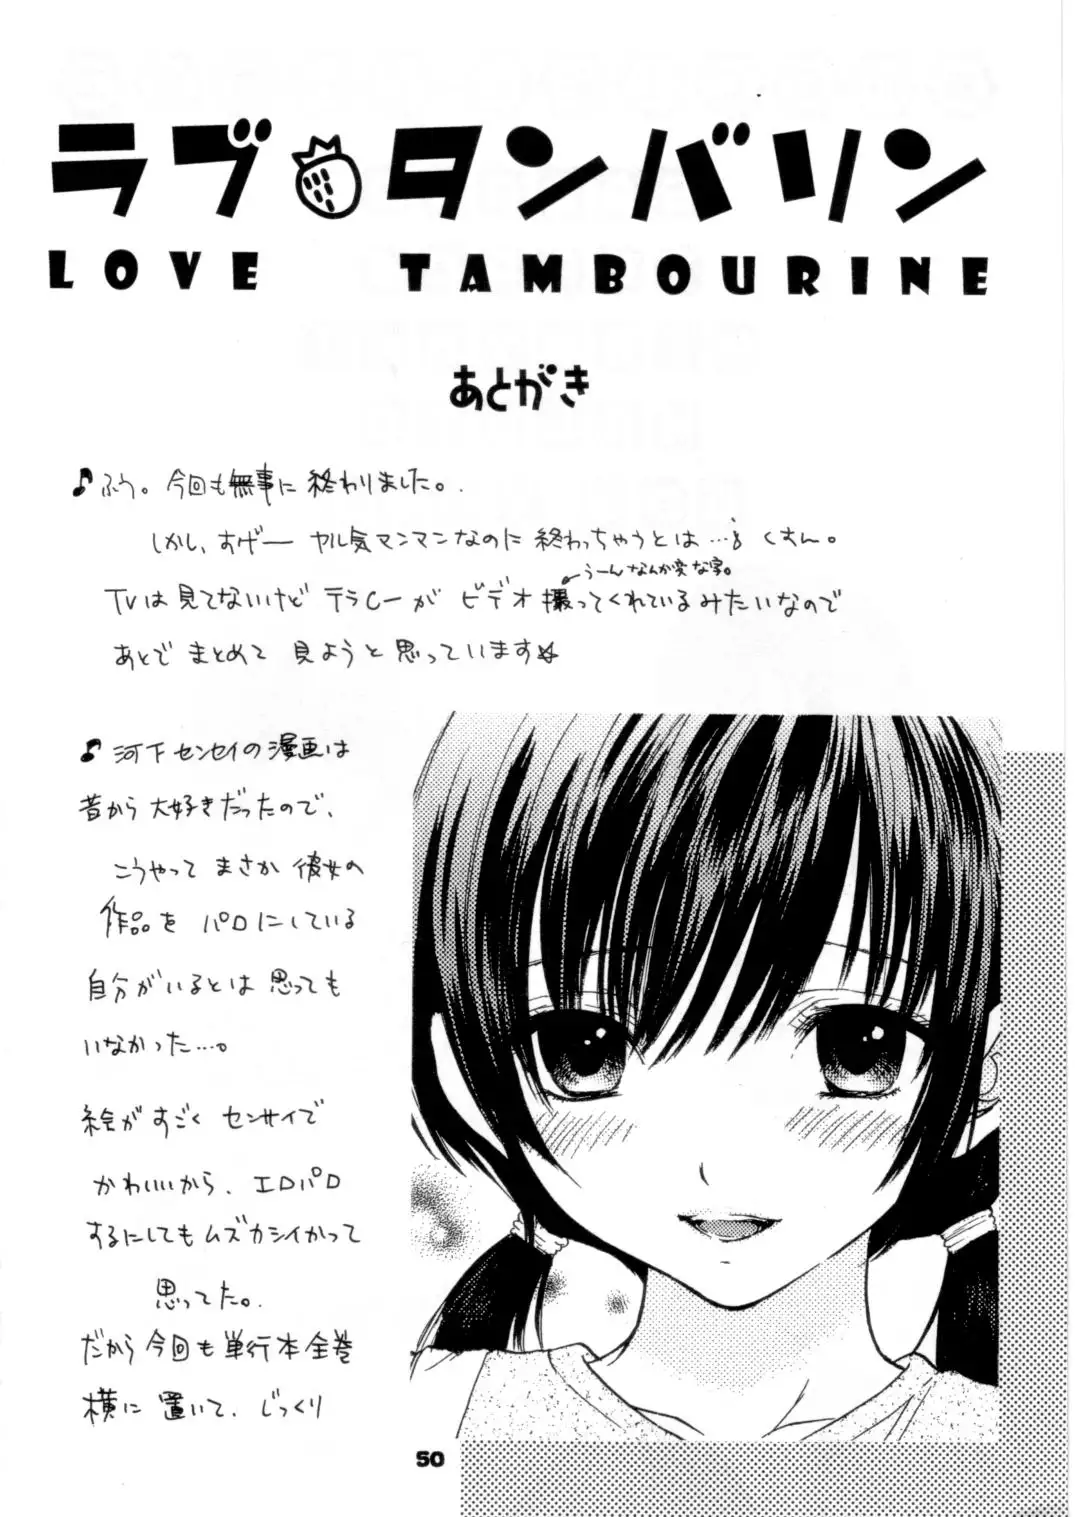 ラブ タンバリン
LOVE TAMBOURINE
あとがき
♪ふう。今回も無事に終わりました。
しかし、すげーヤル気マンマンなのに終わっちゃうとは…。くすん。
うーんなんか変な字。
TVは見てないけどテラCーがビデオ撮ってくれているみたいなので
あとでまとめて見ようと思っています☆
♪河下センセイの漫画は
昔から大好きだったので、
こうやってまさか彼女の
作品をパロにしている
自分がいるとは思っても
いなかった…。
絵がすごくセンサイで
かわいいから、エロパロ
するにしてもムズカシイかって
思ってた。
だから今回も単行本全巻
横に置いて、じっくり
50